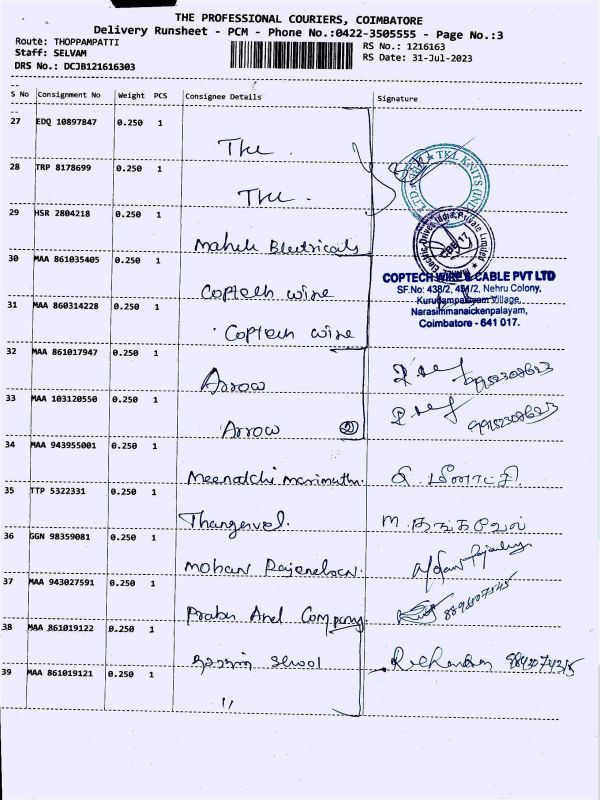 THE PROFESSIONAL COURIERS, COIMBATORE
Delivery Runsheet - PCM - Phone No.:0422-3505555 - Page No.:3
Route: THOPPAMPATTI
Staff: SELVAM
DRS No.: DCJB121616303
RS No.: 1216163
RS Date: 31-Jul-2023
S No Consignment No Weight PCS Consignee Details Signature
27 EDQ 10897847 0.250 1
The
28 TRP 8178699 0.250 1
The
TKL KNITS (IND)
29 HSR 2804218 0.250 1
Electricals
Private Limited
30 MAA 861035405 0.250 1
Coptech wire
COPTECH WIRE & CABLE PVT LTD
SF.No: 438/2, Nehru Colony,
Kurudampalayam Village,
Narasimmanaickenpalayam,
Coimbatore - 641 017.
31 MAA 860314228 0.250 1
Coptech wire
32 MAA 861017947 0.250 1
Arrow
33 MAA 103120550 0.250 1
Arrow (2)
34 MAA 943955001 0.250 1
Meenatchi marimuthu. மீனாட்சி
35 TTP 5322331 0.250 1
Thangavel. M. தங்கவேல்
36 GGN 98359081 0.250 1
Mohan
37 MAA 943027591 0.250 1
Prabu And Company
38 MAA 861019122 0.250 1
39 MAA 861019121 0.250 1
"